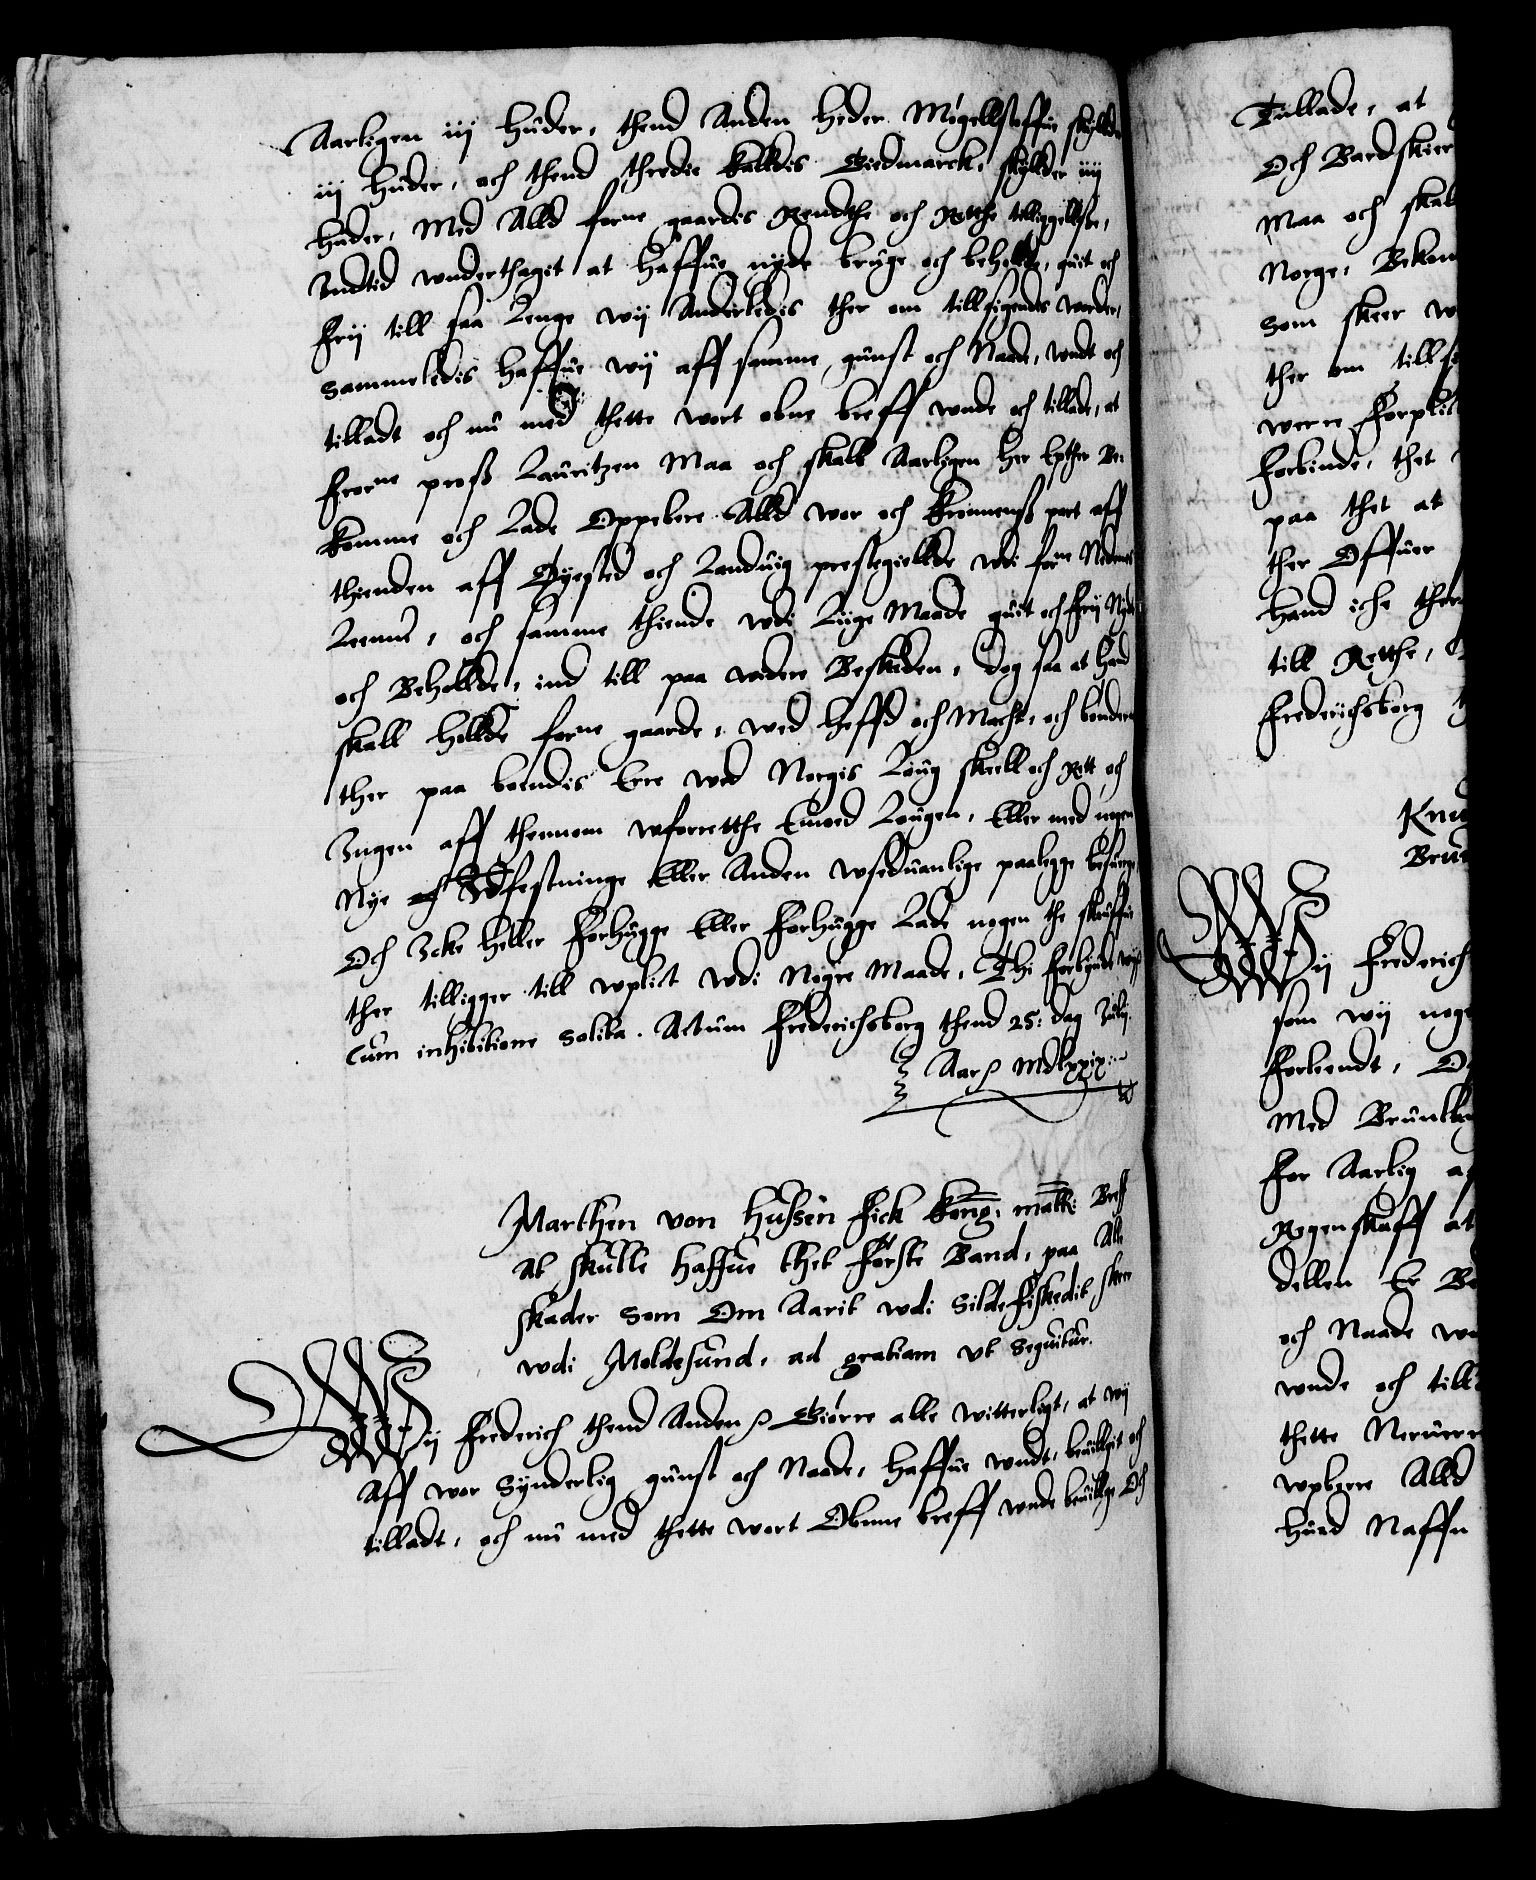 Aarligen iij huder, thend Anden heder Migellstoffue skyllder
iij huder, och thend thredie kalldis Giedmarck, skyllder iiij
huder, Med Alld forne gaardis Rendthe och Retthe tilliggellsse,
Indtid wnderthagit at haffue nyde bruge och beholde, quit och
frij till saa Lenge wij Anderledis ther om tillsigendes worder,
Sammeledis haffue wij aff samme gunst och Naade, wndt och
tilladt och nu med thette wort obne breff wnde och tillade, at
frorne proffs Lauritzen Maa och skall Aarligen her Epther Be-
komme och Lade Oppebere Alld wor och Kronenss part aff
thienden aff Øyested och Landuig prestegiellde wdi forne Nedenes
Leenn, och samme thiende wdi Liige Maade quit och frij Nyde
och Behollde, ind till paa widere Beskeden, dog saa at hand
skall hollde forne gaarde, wed heffd och Macht, och bonderne
ther paa boendis Erre wed Norgis Loug skiell och Rett och
Ingen aff thennom wforretthe Emoed Lougen, Eller med nogen
Nye Indfestninge Eller Anden wseduanlige paalegge besuerge,
Och Icke heller forhugge Eller forhugge Lade nogen the skouffue
ther tilligger till wplict wdi Nogre Maade, Thi forbyude wij
Cum inhibitione solita. Actum Frederichsborg thend 25. dag Julij.
Aar Mdlxxix.
Marthen von Hussen fick Kong. matt. Breff
At skulle haffue thet første Band, paa Alle
skader som Om Aarit wdi Sildefiskedit skeer
wdi Moldesund, ad gratiam vt sequitur.
Wij Frederich thend Anden Giørre alle witterligt, at wij
Aff wor synderlig gunst och Naade, haffue wndt, beuilgit och
tilladt, och nu med thette wort Obnne breff wnde beuillge Och
Tillade, at
Och Bardskier
Maa och skall
Norge, Bekom
som skeer w
ther om tillsi
were forplict
forbinde, thet
paa thet at
ther Offuer
hand iche ther
till Retthe,
Frederichsborg
Knu
Bru
Wij Frederich
som wij noge
forleendt, O
Med Brunckeb
for Aarlig a
Regenskaff at
dellen Er Be
och Naade wn
wnde och till
thette Neruer
wpberre Alld
huad Naffn